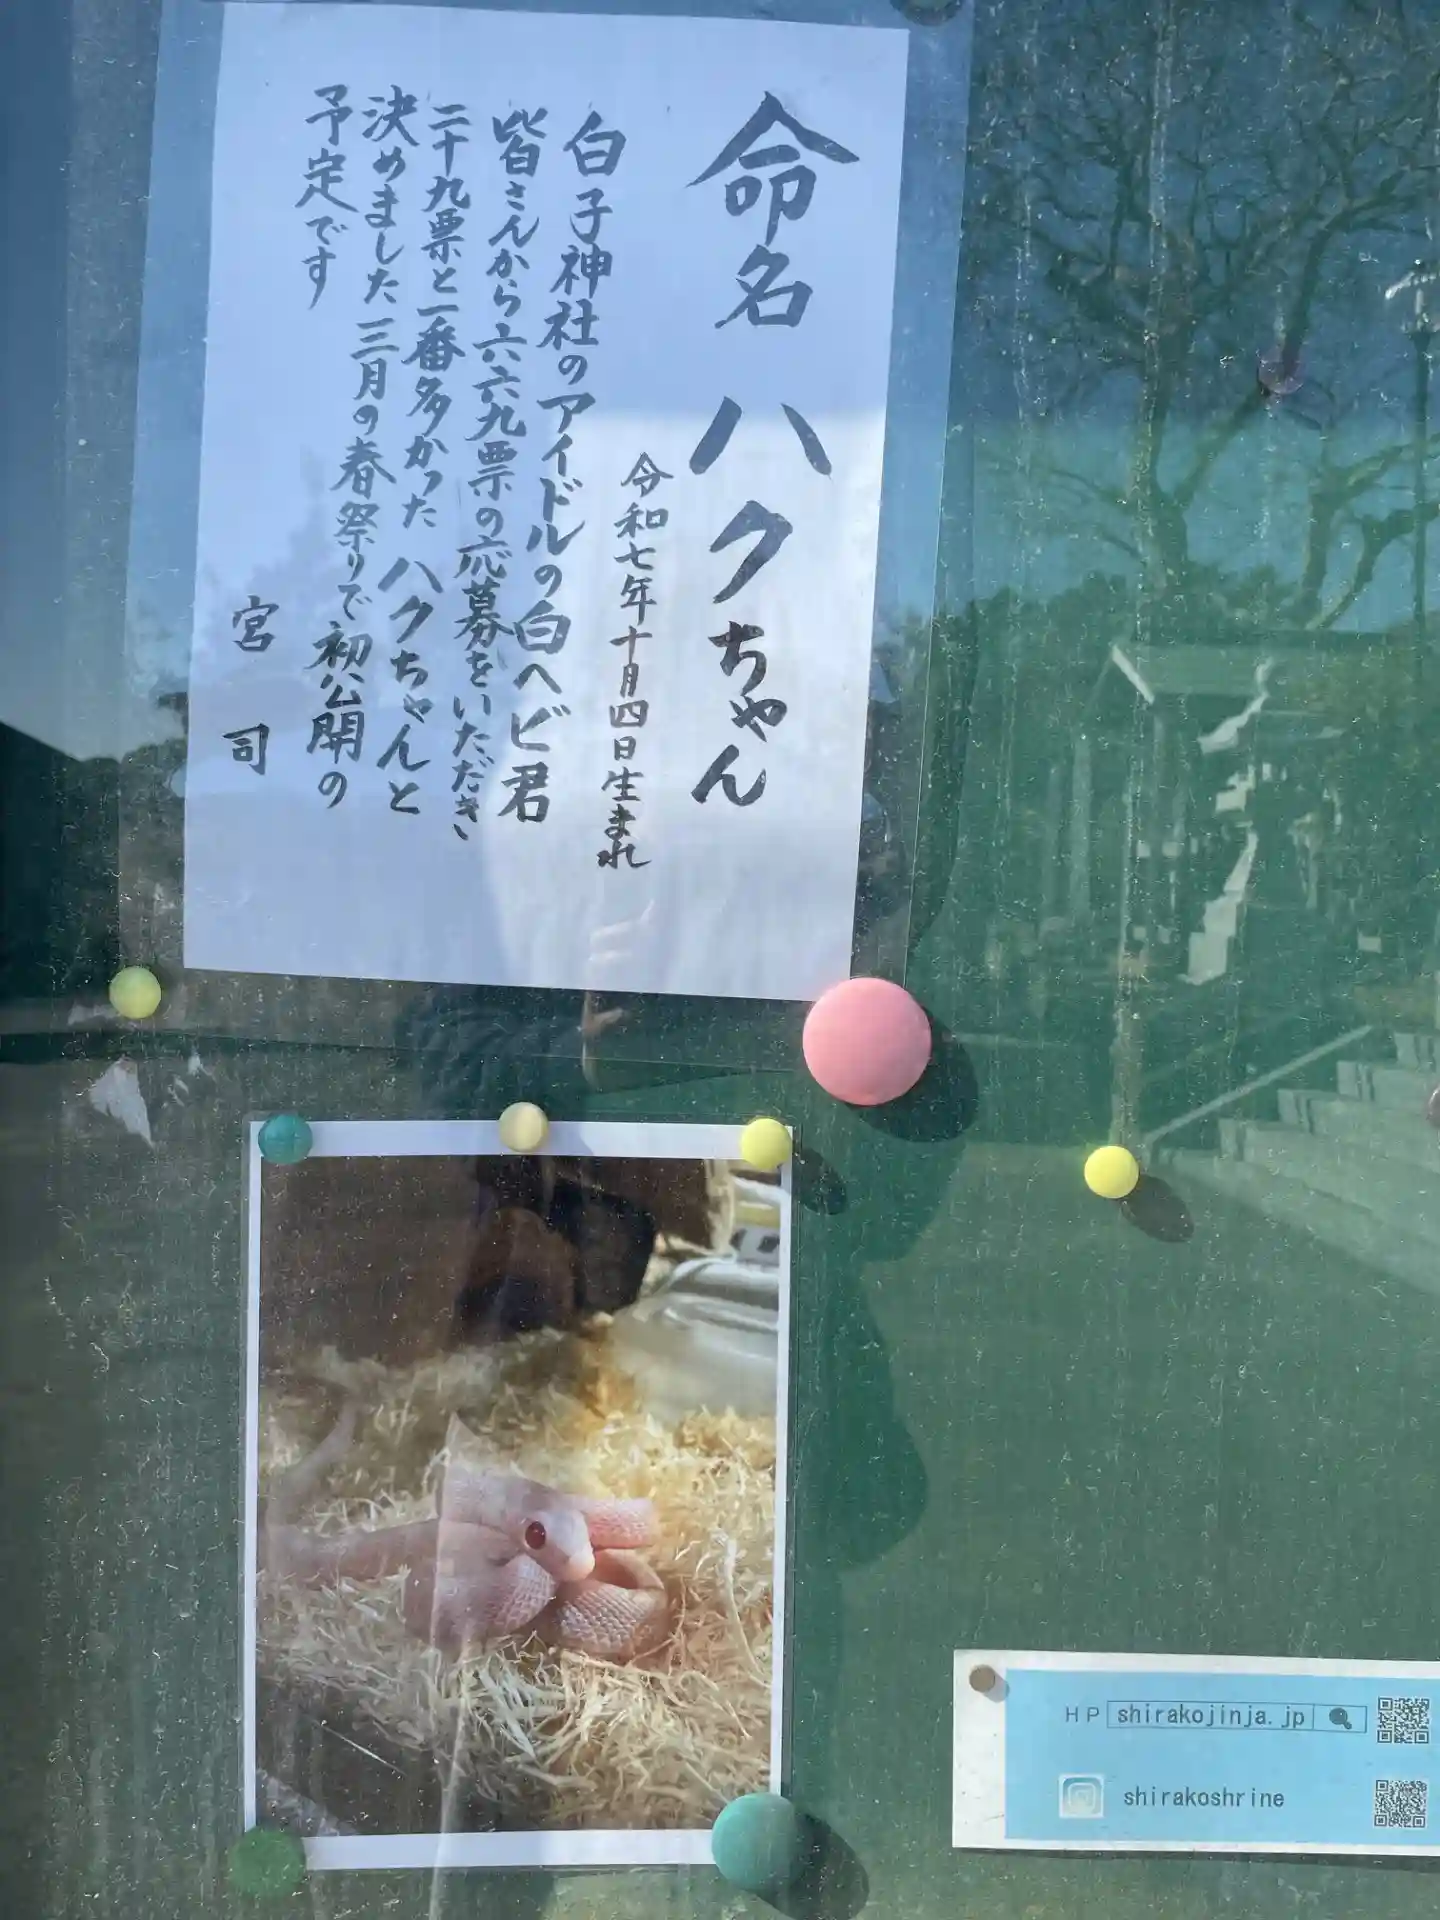 命名 ハクちゃん
令和七年十月四日生まれ
白子神社のアイドルの白ヘビ君
皆さんから六六九票の応募をいただき
二十九票と一番多かった ハクちゃんと
決めました 三月の春祭りで初公開の
予定です
宮司
HP shirakojinja.jp
shirakoshrine